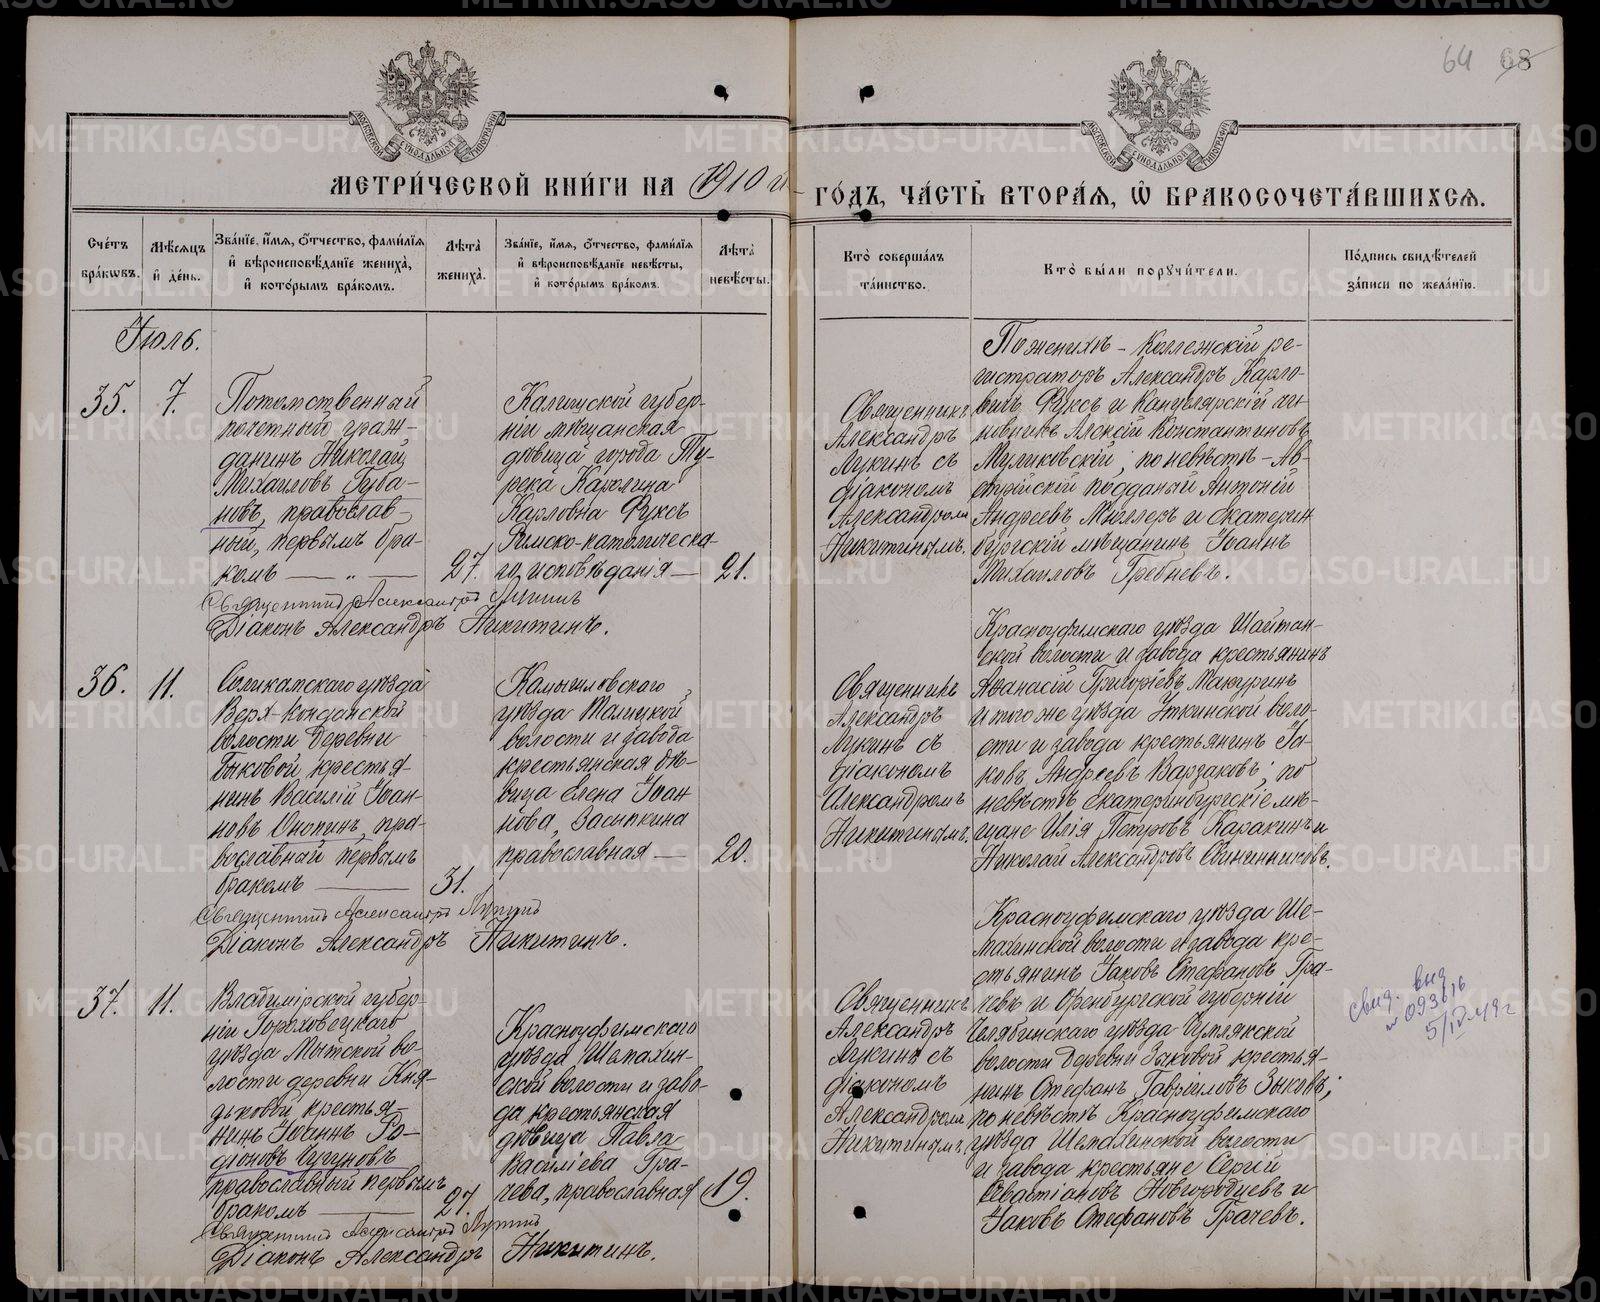 64 68
МЕТРИ́ЧЕСКОЙ КНИ́ГИ НА 1910 й
ГО́ДЪ, ЧА́СТЬ ВТОРА́Я, Ѡ БРАКОСОЧЕТА́ВШИХСЯ.
Сче́тъ бра́кѡвъ.
Мѣ́сяцъ и҆ де́нь.
Зва́нїе, и҆́мя, ѻ҆́тчество, фами́лїя и҆ вѣроисповѣ́данїе жениха̀, и҆ кото́рымъ бра́комъ.
Лѣ́та̀ жениха̀.
Зва́нїе, и҆́мя, ѻ҆́тчество, фами́лїя и҆ вѣроисповѣ́данїе невѣ́сты, и҆ кото́рымъ бра́комъ.
Лѣ́та̀ невѣ́сты.
Кто̀ соверша́лъ та́инство.
Кто̀ бы́ли порꙋчи́тели.
По́дпись свидѣ́телей за́писи по жела́нїю.
Іюль.
35.
7.
Потомственный
почетный граж-
данинъ Николай
Михаиловъ Губа-
новъ, православ-
ный, первымъ бра-
комъ — „ —
27.
Калишской губер-
ніи мѣщанская
дѣвица города Ту-
река Каролина
Карловна Фуксъ
Римско-католическа-
го исповѣданія —
21.
Священникъ
Александръ
Лукинъ съ
діакономъ
Александромъ
Никитинымъ.
По женихѣ - Коллежскій ре-
гистраторъ Александръ Карло-
вичъ Фуксъ и Канцелярскій чи-
новникъ Алексій Константиновъ
Муликовскій; по невѣстѣ - Ав-
стрійскій подданый Антоній
Андреевъ Мюллеръ и Екатерин
бургскій мѣщанинъ Іоаннъ
Михаиловъ Гребневъ.
Священникъ Александръ Лукинъ
Діаконъ Александръ Никитинъ.
36.
11.
Соликамскаго уѣзда
Верх-Кондасской
волости деревни
Быковой крестья-
нинъ Василій Іоан-
новъ Онокинъ, пра-
вославный первымъ
бракомъ —
31.
Камышловскаго
уѣзда Талицкой
волости и завода
крестьянская дѣ-
вица Елена Іоан
нова, Засыпкина
православная —
20.
Священникъ
Александръ
Лукинъ съ
діакономъ
Александромъ
Никитинымъ.
Красноуфимскаго уѣзда Шайтан-
ской волости и завода крестьянинъ
Аѳанасій Григоріевъ Макуринъ
и того же уѣзда Уткинской воло-
сти и завода крестьянинъ Іа-
ковъ Андреевъ Варзаковъ; по
невѣстѣ Екатеринбургскіе мѣ-
щане Илія Петровъ Каракинъ и
Николай Александровъ Свининниковъ.
Священникъ Александръ Лукинъ
Діаконъ Александръ Никитинъ.
37.
11.
Владимірской губер-
ніи Гороховецкаго
уѣзда Мытской во-
лости деревни Кня-
зьковой, крестья-
нинъ Іоаннъ Ро-
діоновъ Чугуновъ
православный первымъ
бракомъ —
27.
Красноуфимскаго
уѣзда Шемахин-
ской волости и заво-
да крестьянская
дѣвица Павла
Василіева Гра-
чева, православная
19.
Священникъ
Александръ
Лукинъ съ
діакономъ
Александромъ
Никитинымъ.
Красноуфимскаго уѣзда Ше-
махинской волости и завода кре-
стьянинъ Іаковъ Стефановъ Гра-
чевъ и Оренбургской губерніи
Челябинскаго уѣзда Чумлякской
волости деревни Зыковой крестья-
нинъ Стефанъ Гавріиловъ Зыковъ;
по невѣстѣ Красноуфимскаго
уѣзда Шемахинской волости
и завода крестьяне Сергій
Севастіановъ Новгородцевъ и
Іаковъ Стефановъ Грачевъ.
свид. выд
№ 093616
5/IV-49 г
Священникъ Александръ Лукинъ
Діаконъ Александръ Никитинъ.
METRIKI.GASO-URAL.RU